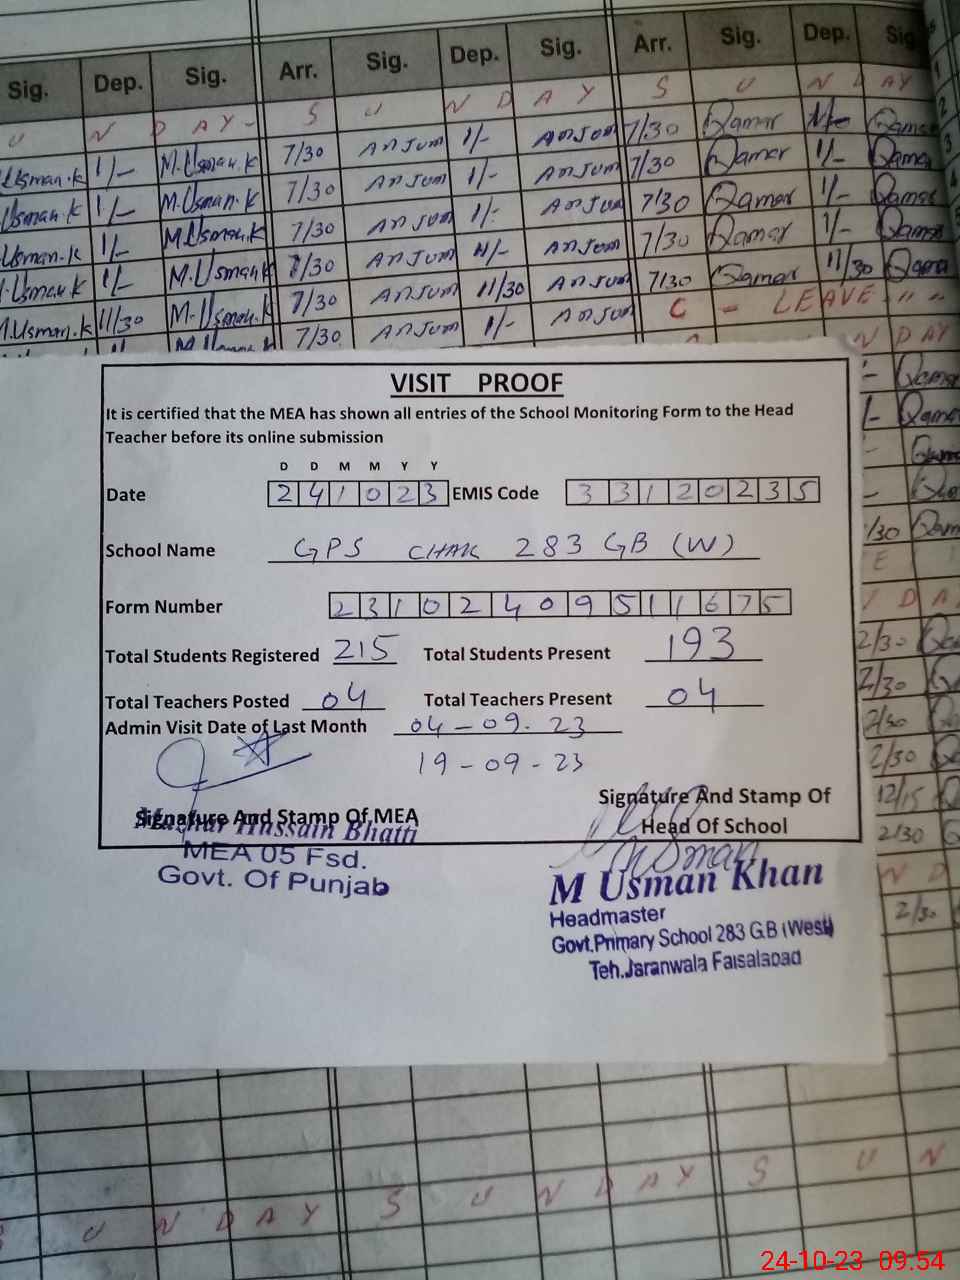 Sig. Dep. Sig. Arr. Sig. Dep. Sig. Arr. Sig. Dep. Sig.
U N D A Y - S U N D A Y S U N D A Y
Usman.k 1/- M.Usman.k 7/30 ANJUM 1/- ANJUM 7/30 Qamar Qamar
Usman.k 1/- M.Usman.k 7/30 ANJUM 1/- ANJUM 7/30 Qamar 1/- Qamar
Usman.k 1/- M.Usman.k 7/30 ANJUM 1/- ANJUM 7/30 Qamar 1/- Qamar
Usman.k 1/- M.Usman.k 7/30 ANJUM ANJUM 7/30 Qamar 1/- Qamar
M.Usman.k 11/30 M.Usman.k 7/30 ANJUM 11/30 ANJUM 7/30 Qamar 11/30 Qamar
7/30 ANJUM 1/- ANJUM C - LEAVE " "
N D A Y
VISIT PROOF
It is certified that the MEA has shown all entries of the School Monitoring Form to the Head
Teacher before its online submission
D D M M Y Y
Date 241023 EMIS Code 33120235
School Name GPS CHAK 283 GB (W)
Form Number 23102409511675
Total Students Registered 215 Total Students Present 193
Total Teachers Posted 04 Total Teachers Present 04
Admin Visit Date of Last Month 04-09.23
19-09-23
Signature And Stamp Of MEA
Hussain Bhatti
MEA 05 Fsd.
Govt. Of Punjab
Signature And Stamp Of
Head Of School
Usman
M Usman Khan
Headmaster
Govt.Primary School 283 G.B (West)
Teh.Jaranwala Faisalabad
2/30
2/30
2/30
2/30
12/15
2/30
N D
2/30
U N D A Y S U N D A Y S U N
24-10-23 09.54